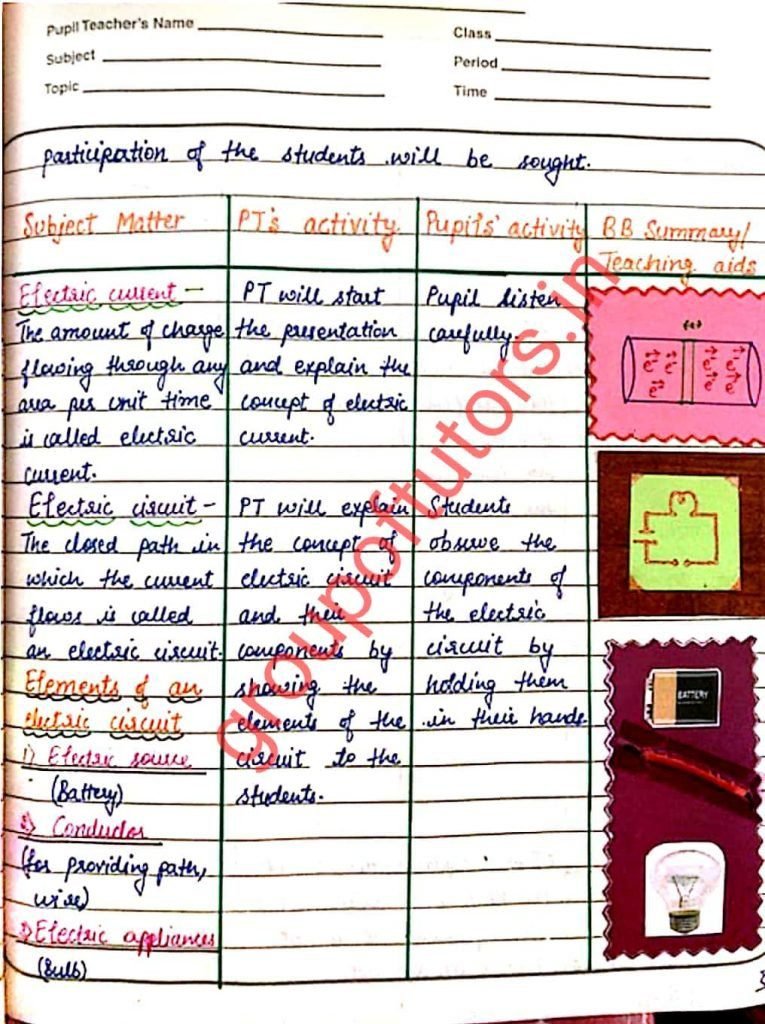 Pupil Teacher's Name
Class
Subject
Period
Topic
Time
participation of the students will be sought.
Subject Matter
PT's activity
Pupils' activity
BB Summary/
Teaching aids
Electric current -
The amount of charge
flowing through any
area per unit time
is called electric
current.
PT will start
the presentation
and explain the
concept of electric
current.
Pupil listen
carefully.
e e e e
e e e
Electric circuit -
The closed path in
which the current
flows is called
an electric circuit.
Elements of an
electric circuit
1) Electric source
(Battery)
2) Conductor
(for providing path,
wire)
3) Electric appliances
(Bulb)
PT will explain
the concept of
electric circuit
and their
components by
showing the
elements of the
circuit to the
students.
Students
observe the
components of
the electric
circuit by
holding them
in their hands
BATTERY
groupoftutors.in